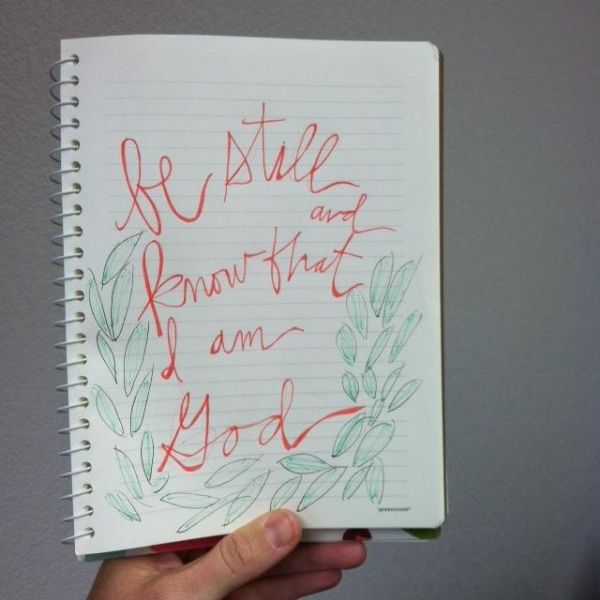 be still
and
know that
I am
God
greenroom®